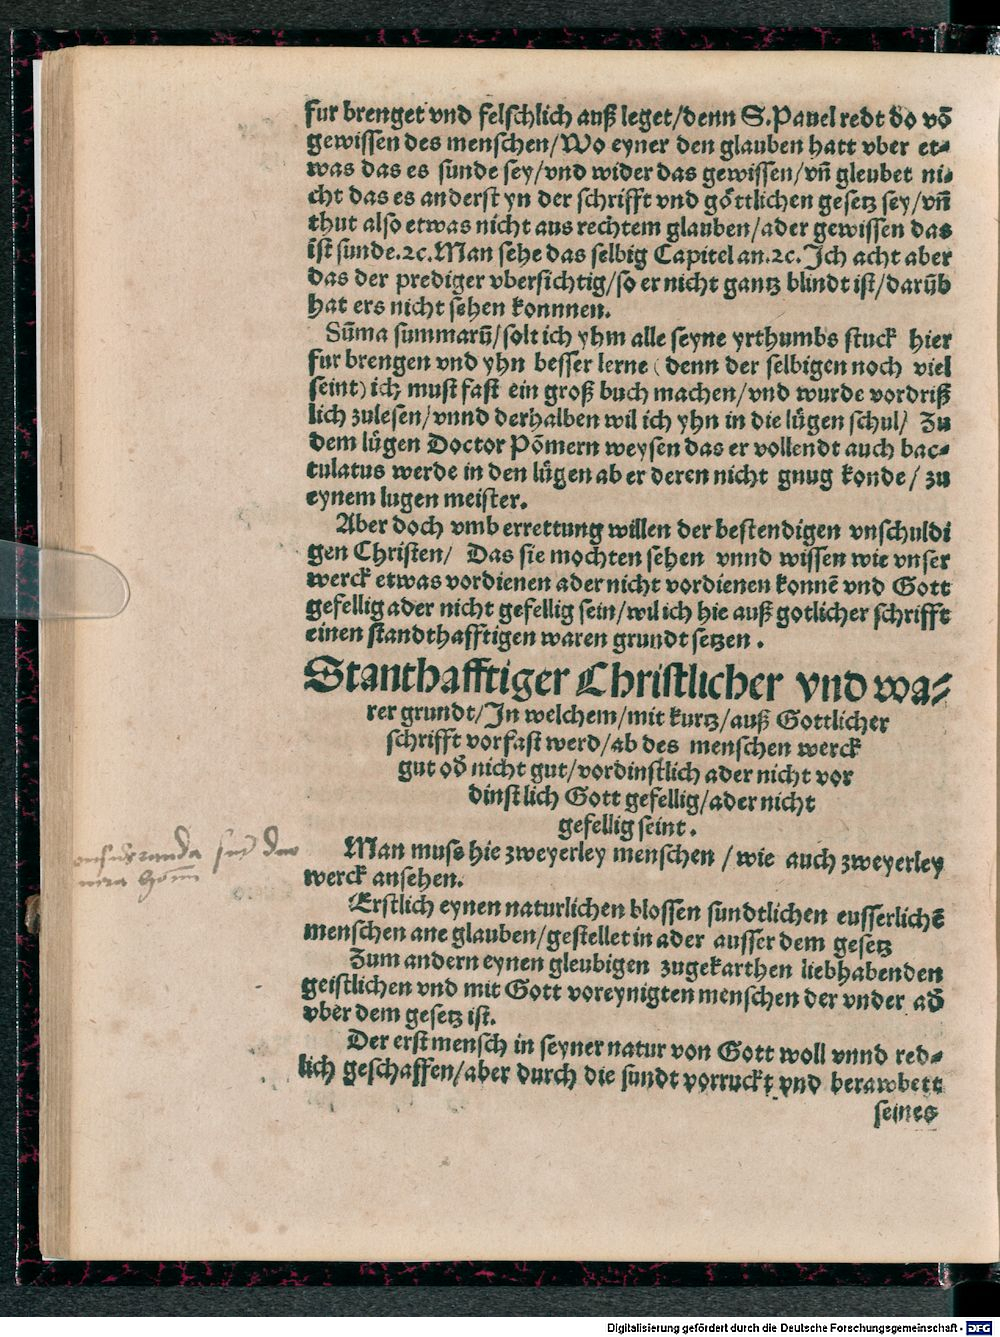 fur brenget vnd felschlich auß leget/denn S.Pauel redt do võ
gewissen des menschen/Wo eyner den glauben hatt vber et⸗
was das es sunde sey/vnd wider das gewissen/vñ gleubet ni⸗
cht das es anderst yn der schrifft vnd gͦttlichen gesetz sey/vñ
thut also etwas nicht aus rechtem glauben/ader gewissen das
ist sunde.ꝛc.Man sehe das selbig Capitel an.ꝛc.Ich acht aber
das der prediger vbersichtig/so er nicht gantz blindt ist/darũb
hat ers nicht sehen konnnen.
Sũma summarũ/solt ich yhm alle seyne yrthumbs stuck hier
fur brengen vnd yhn besser lerne (denn der selbigen noch viel
seint) ich must fast ein groß buch machen/vnd wurde vordriß
lich zulesen/vnnd derhalben wil ich yhn in die lügen schul/ Zu
dem lügen Doctor Põmern weysen das er vollendt auch bac⸗
tulatus werde in den lügen ab er deren nicht gnug konde/ zu
eynem lugen meister.
Aber doch vmb errettung willen der bestendigen vnschuldi
gen Christen/ Das sie mochten sehen vnnd wissen wie vnser
werck etwas vordienen ader nicht vordienen konnẽ vnd Gott
gefellig ader nicht gefellig sein/wil ich hie auß gotlicher schrifft
einen standthafftigen waren grundt setzen.
Stanthafftiger Christlicher vnd wa⸗
rer grundt/In welchem/mit kurtz/auß Gottlicher
schrifft vorfast werd/ab des menschen werck
gut oð nicht gut/vordinstlich ader nicht vor
dinstlich Gott gefellig/ader nicht
gefellig seint.
Man muss hie zweyerley menschen/wie auch zweyerley
werck ansehen.
Erstlich eynen naturlichen blossen sundtlichen eusserlichẽ
menschen ane glauben/gestellet in ader ausser dem gesetz
Zum andern eynen gleubigen zugekarthen liebhabenden
geistlichen vnd mit Gott voreynigten menschen der vnder að
vber dem gesetz ist.
Der erst mensch in seyner natur von Gott woll vnnd red⸗
lich geschaffen/aber durch die sundt vorruckt vnd berawbett
seines
Digitalisierung gefördert durch die Deutsche Forschungsgemeinschaft - DFG